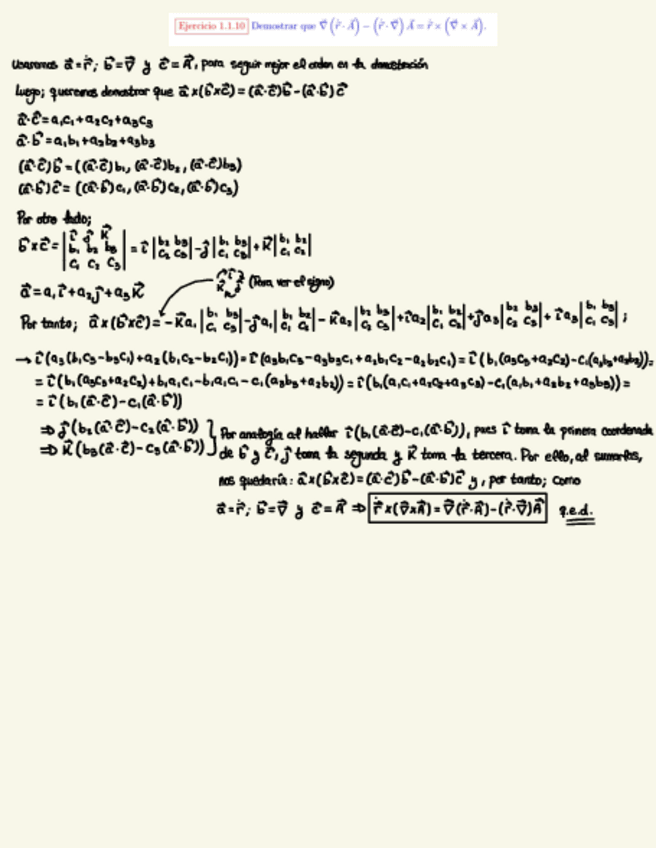 Ejercicio 1.1.10 Demostrar que ∇⃗(ṙ⃗ · A⃗) − (ṙ⃗ · ∇⃗) A⃗ = ṙ⃗ × (∇⃗ × A⃗).
Usaremos a⃗ = ṙ⃗; b⃗ = ∇⃗ y c⃗ = A⃗, para seguir mejor el orden en la demostración
Luego; queremos demostrar que a⃗×(b⃗×c⃗) = (a⃗·c⃗)b⃗ − (a⃗·b⃗)c⃗
a⃗·c⃗ = a₁c₁ + a₂c₂ + a₃c₃
a⃗·b⃗ = a₁b₁ + a₂b₂ + a₃b₃
(a⃗·c⃗)b⃗ = ((a⃗·c⃗)b₁, (a⃗·c⃗)b₂, (a⃗·c⃗)b₃)
(a⃗·b⃗)c⃗ = ((a⃗·b⃗)c₁, (a⃗·b⃗)c₂, (a⃗·b⃗)c₃)
Por otro lado;
b⃗×c⃗ = |i⃗ j⃗ k⃗; b₁ b₂ b₃; c₁ c₂ c₃| = i⃗ |b₂ b₃; c₂ c₃| − j⃗ |b₁ b₃; c₁ c₃| + k⃗ |b₁ b₂; c₁ c₂|
a⃗ = a₁i⃗ + a₂j⃗ + a₃k⃗ (Para ver el signo)
Por tanto; a⃗×(b⃗×c⃗) = −k⃗a₁ |b₁ b₃; c₁ c₃| − j⃗a₁ |b₁ b₂; c₁ c₂| − k⃗a₂ |b₂ b₃; c₂ c₃| + i⃗a₂ |b₁ b₂; c₁ c₂| + j⃗a₃ |b₂ b₃; c₂ c₃| + i⃗a₃ |b₁ b₃; c₁ c₃| ;
→ i⃗(a₃(b₁c₃−b₃c₁)+a₂(b₁c₂−b₂c₁)) = i⃗(a₃b₁c₃−a₃b₃c₁+a₂b₁c₂−a₂b₂c₁) = i⃗(b₁(a₃c₃+a₂c₂)−c₁(a₃b₃+a₂b₂)) =
= i⃗(b₁(a₃c₃+a₂c₂)+b₁a₁c₁−b₁a₁c₁−c₁(a₃b₃+a₂b₂)) = i⃗(b₁(a₁c₁+a₂c₂+a₃c₃)−c₁(a₁b₁+a₂b₂+a₃b₃)) =
= i⃗(b₁(a⃗·c⃗)−c₁(a⃗·b⃗))
⇒ j⃗(b₂(a⃗·c⃗)−c₂(a⃗·b⃗))
⇒ k⃗(b₃(a⃗·c⃗)−c₃(a⃗·b⃗))
Por analogía al hallar i⃗(b₁(a⃗·c⃗)−c₁(a⃗·b⃗)), pues i⃗ toma la primera coordenada
de b⃗ y c⃗, j⃗ toma la segunda y k⃗ toma la tercera. Por ello, al sumarlos,
nos quedaría: a⃗×(b⃗×c⃗) = (a⃗·c⃗)b⃗ − (a⃗·b⃗)c⃗ y, por tanto; como
a⃗ = ṙ⃗; b⃗ = ∇⃗ y c⃗ = A⃗ ⇒ ṙ⃗×(∇⃗×A⃗) = ∇⃗(ṙ⃗·A⃗) − (ṙ⃗·∇⃗)A⃗ q.e.d.